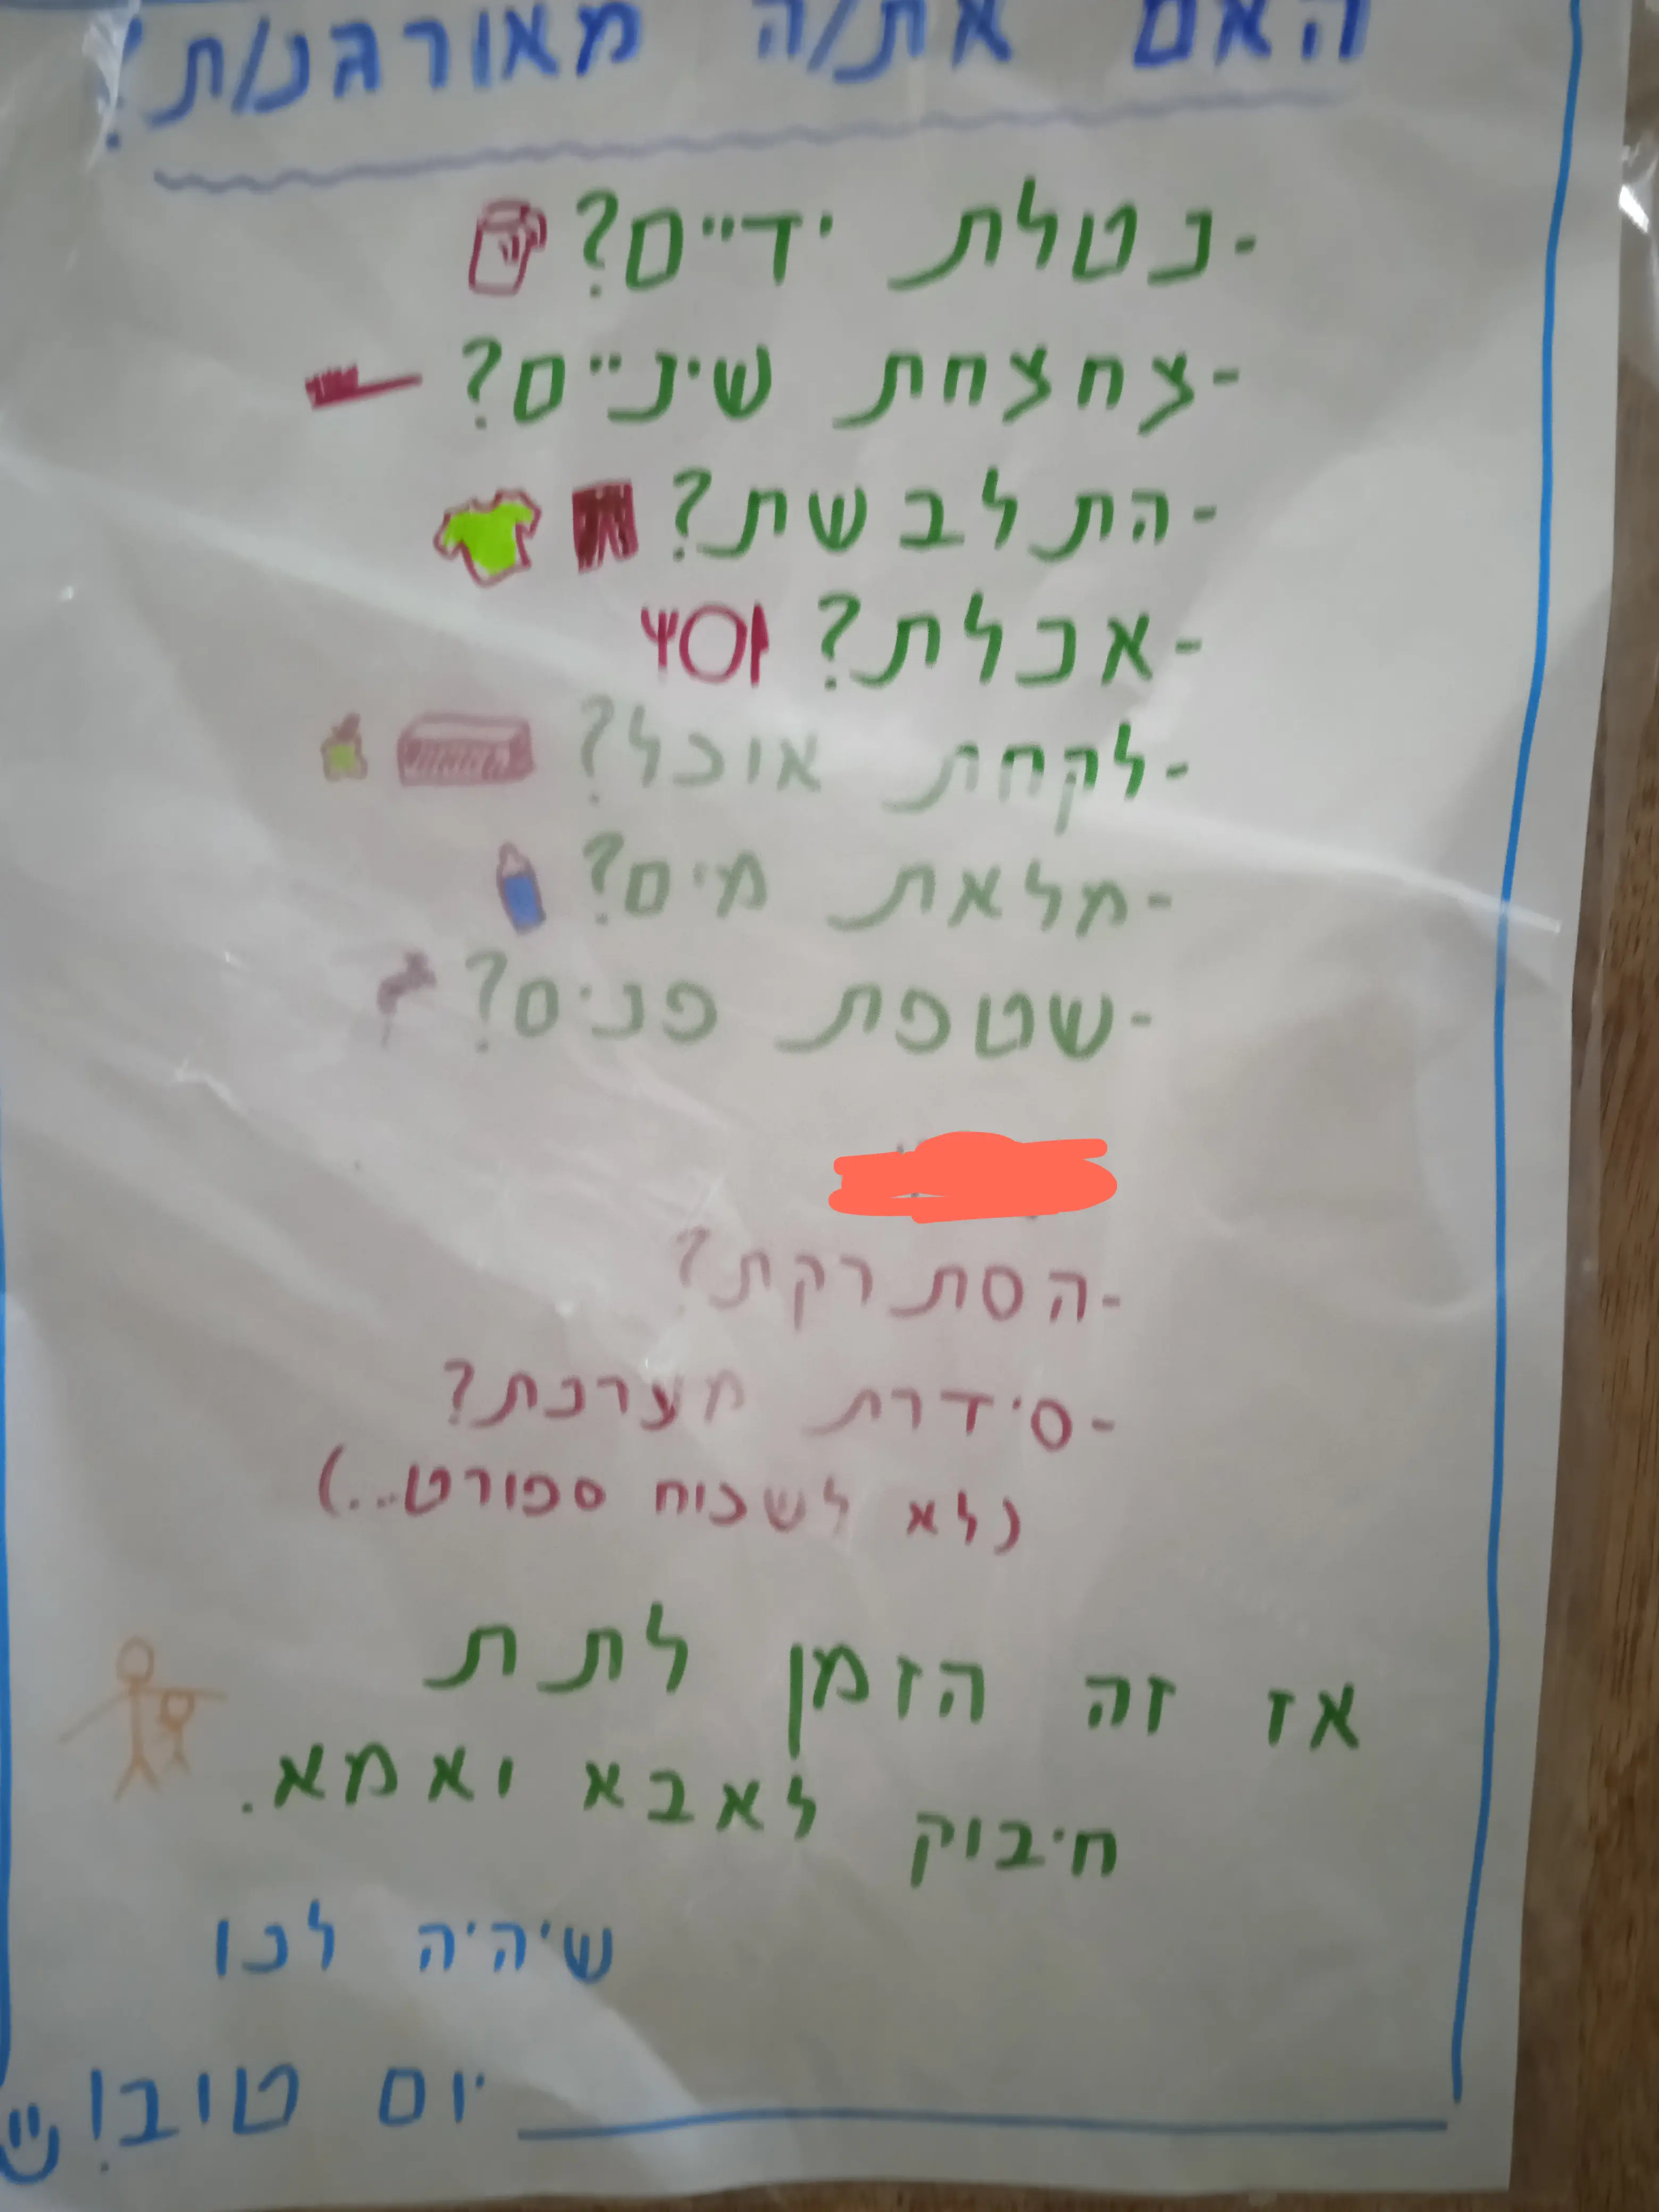 האם את/ה מאורגנ/ת?
-נטלת ידיים?
-צחצחת שיניים?
-התלבשת?
-אכלת?
-לקחת אוכל?
-מלאת מים?
-שטפת פנים?
-הסתרקת?
-סידרת מערכת?
(לא לשכוח ספורט...)
אז זה הזמן לתת
חיבוק לאבא ואמא.
שיהיה לכו
יום טוב!